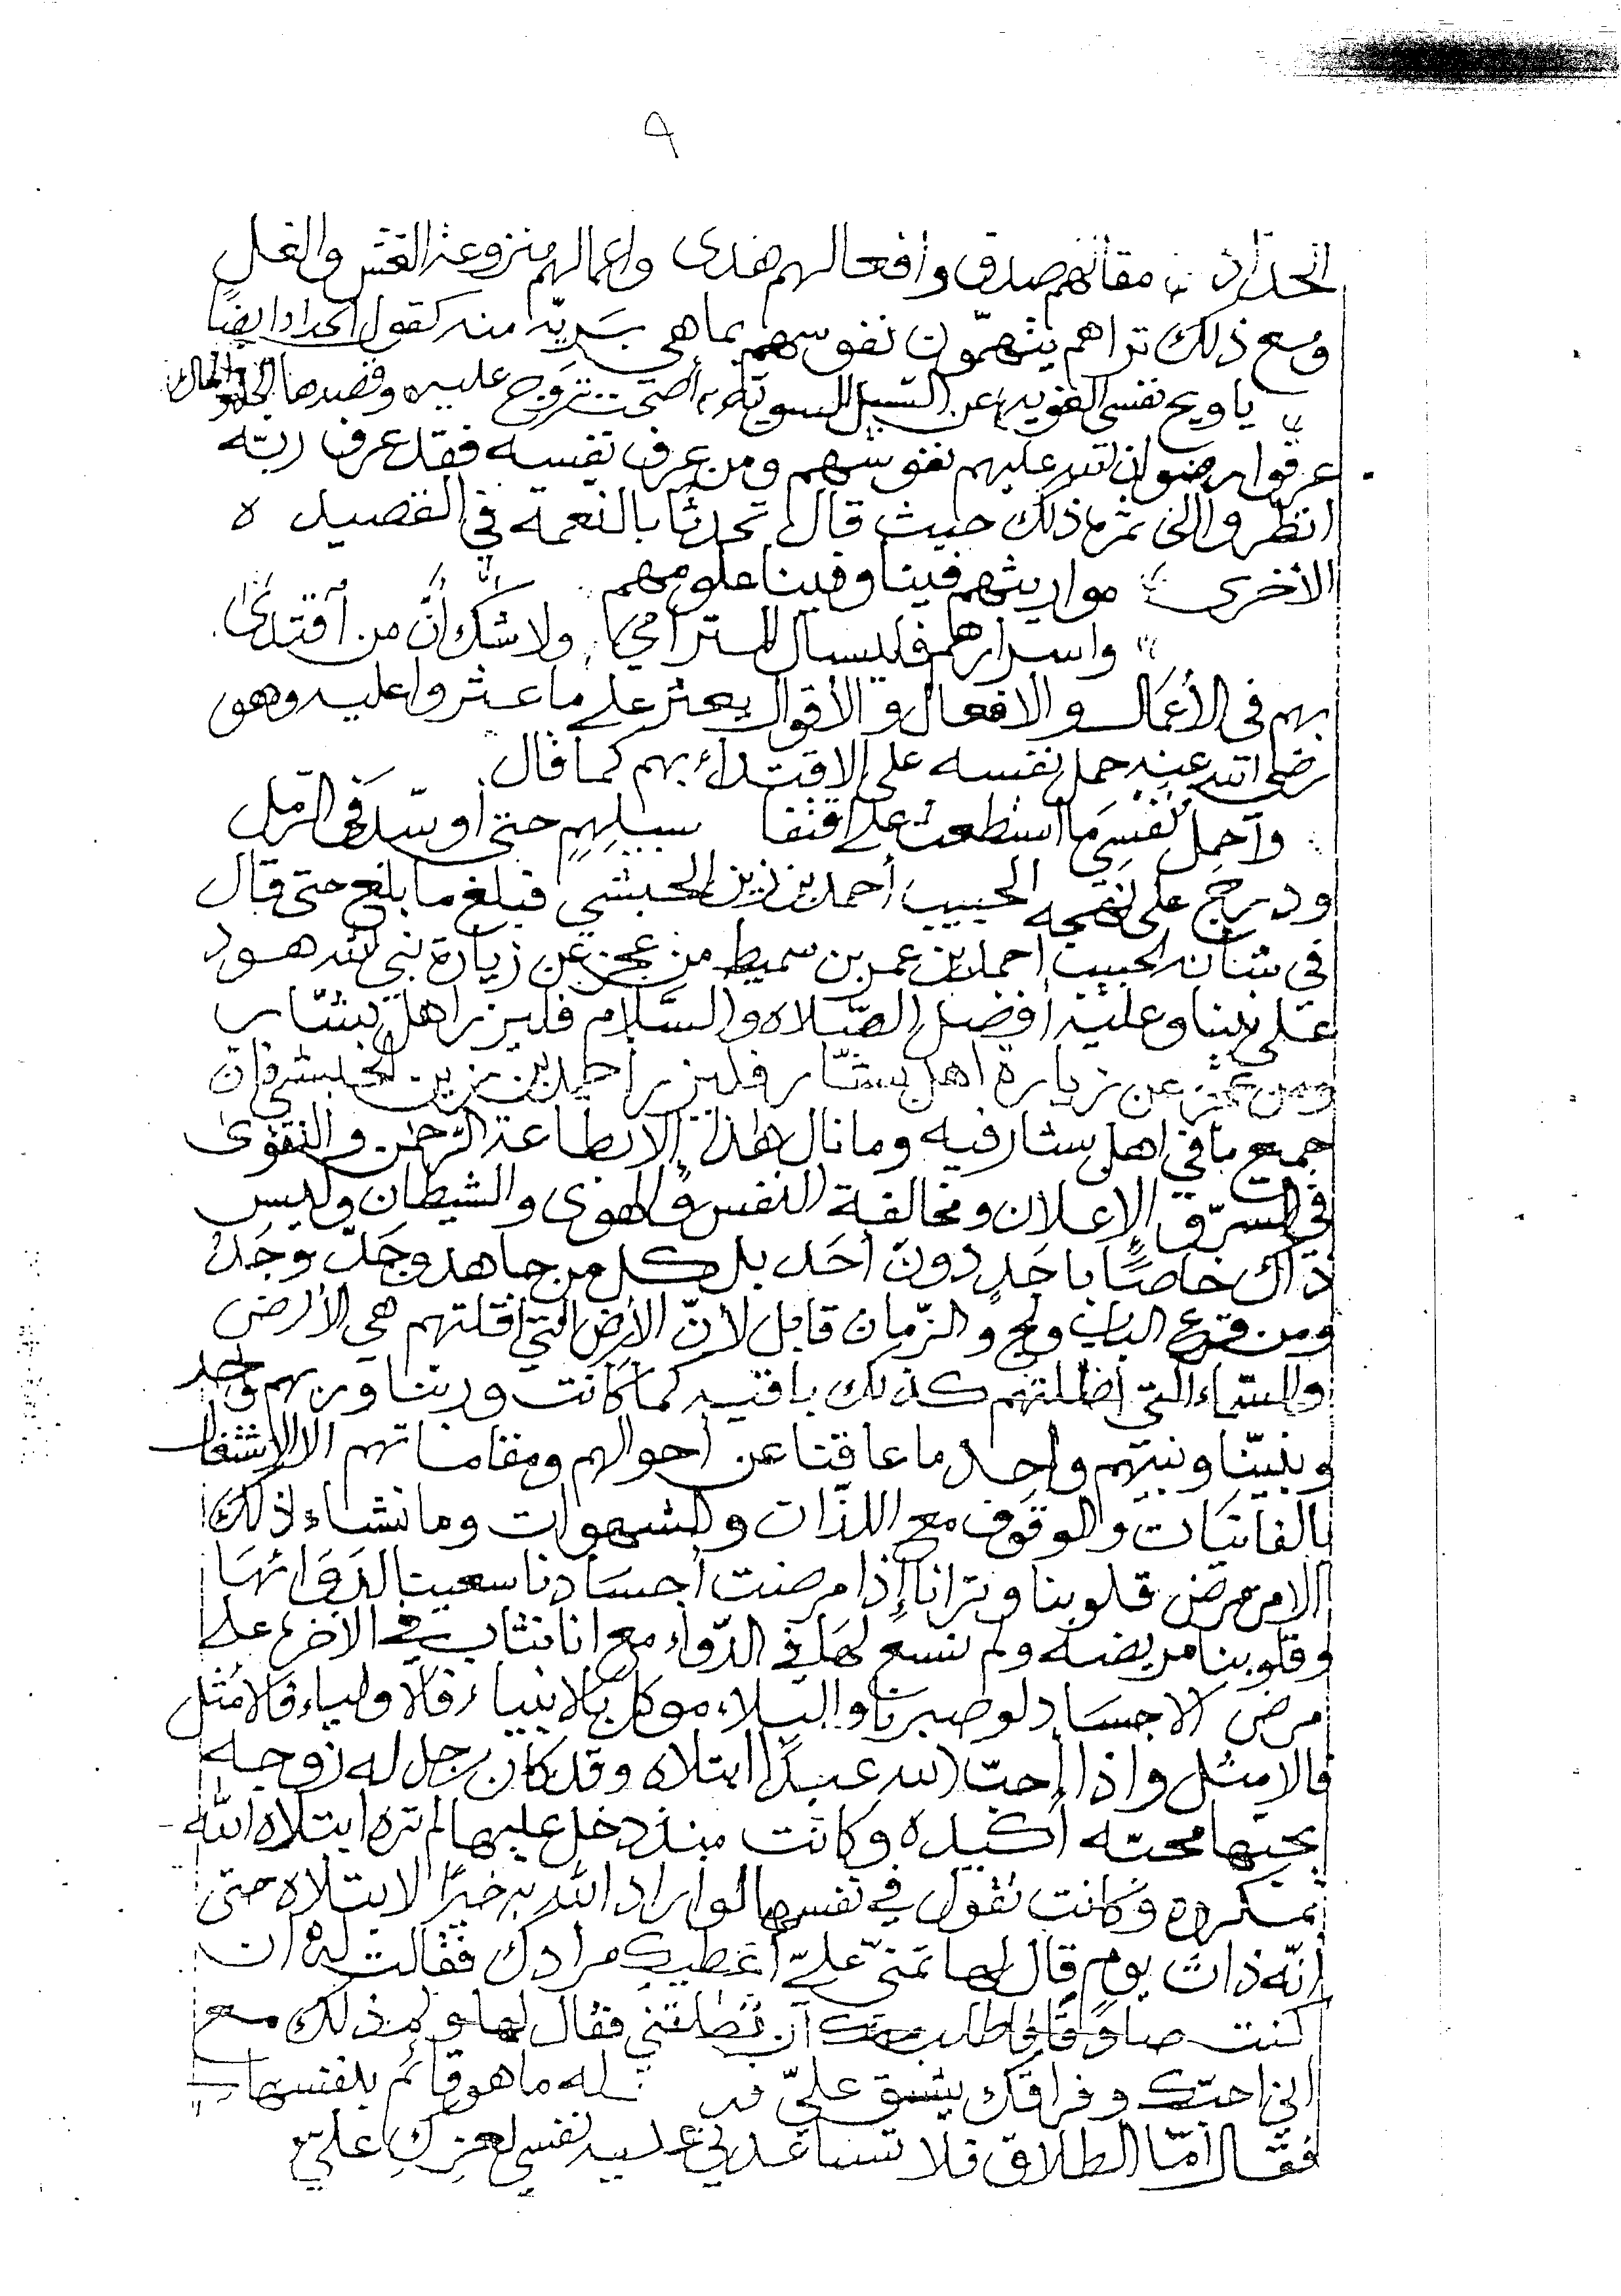 ٩
الحداد ؞ مقالهم صدق وأفعالهم هدى وأعمالهم منزوعة الغش والغل
ومع ذلك تراهم يتهمون نفوسهم بما هي بريّه منه كقول الحداد ايضًا
يا ويح نفسي الغويه عن السبيل السويه أضحت تروج عليه وقصدها الجاه والمال
عرفوا رضوان الله عليهم نفوسهم ومن عرف نفسه فقد عرف ربّه
انظروا الى ثمرة ذلك حيث قال تحدثًا بالنعمة في القصيده
الأخرى مواريثهم فينا وفينا علومهم
وأسرارهم فليسأل المترامي ولا شك أنّ من اقتدى
بهم في الأعمال والافعال والأقوال يعثر على ما عثروا عليه وهو
رضي الله عنه حمل نفسه على الاقتداء بهم كما قال
وأحمل نفسي ما استطعت على اقتفا سبيلهم حتى أوسّد في الرّمل
ودرج على نهجه الحبيب أحمد بن زين الحبشي فبلغ ما بلغ حتى قال
في شأنه الحبيب احمد بن عمر بن سميط من عجز عن زيارة نبي الله هود
على نبينا وعليه أفضل الصّلاه والسّلام فليزر اهل بشّار
ومن عجز عن زيارة اهل بشّار فليزر احمد بن زين الحبشي فان
جميع ما في اهل بشار فيه وما نال هذا الا بطاعة الرّحمن والتقوى
في السرّ والإعلان ومخالفة النفس والهوى والشيطان وليس
ذاك خاصًّا باحدٍ دون أحد بل كل من جاهد وجدّ وجد
ومن قرع الباب ولج والزّمان قابل لانّ الأرض التي اقلتهم هي الأرض
والسماء التي أظلتهم كذلك باقيه كما كانت وربنا وربهم واحد
ونبيّنا ونبيّهم واحد ما عاقنا عن أحوالهم ومقاماتهم الا الاشتغال
بالفانيات والوقوف مع اللذّات والشهوات وما نشاء ذلك
الا من مرض قلوبنا وترانا إذا مرضت أجسادنا سعينا لدوائها
وقلوبنا مريضه ولم نسع لها في الدّواء مع انا نثاب في الآخره على
مرض الاجساد لو صبرنا والبلاء موكل بالانبياء فالأولياء فالأمثل
فالامثل واذا أحبّ الله عبدًا ابتلاه وقد كان رجل له زوجه
يحبها محبّه أكيده وكانت منذ دخل عليها لم تره ابتلاه الله
بمكروه وكانت تقول في نفسها لو أراد الله به خيرًا لابتلاه حتى
أنّه ذات يوم قال لها تمنّي عليّ أعطيك مرادك فقالت له ان
كنت صادقًا فاطلب منك أن تطلقني فقال لها ولم ذلك مع
اني احبّك وفراقك يشق عليّ له ما هو قائم بنفسها
فقال أمّا الطلاق فلا تساعدني عليه نفسي لعزك عليّ